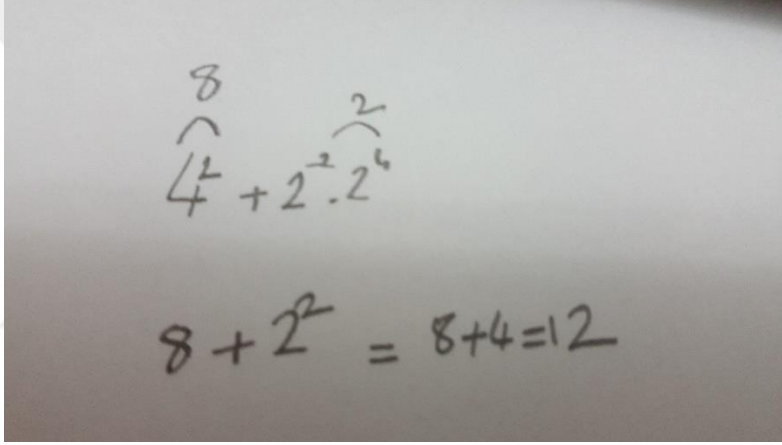 8 2
4² + 2⁻² . 2⁴
8 + 2² = 8+4=12